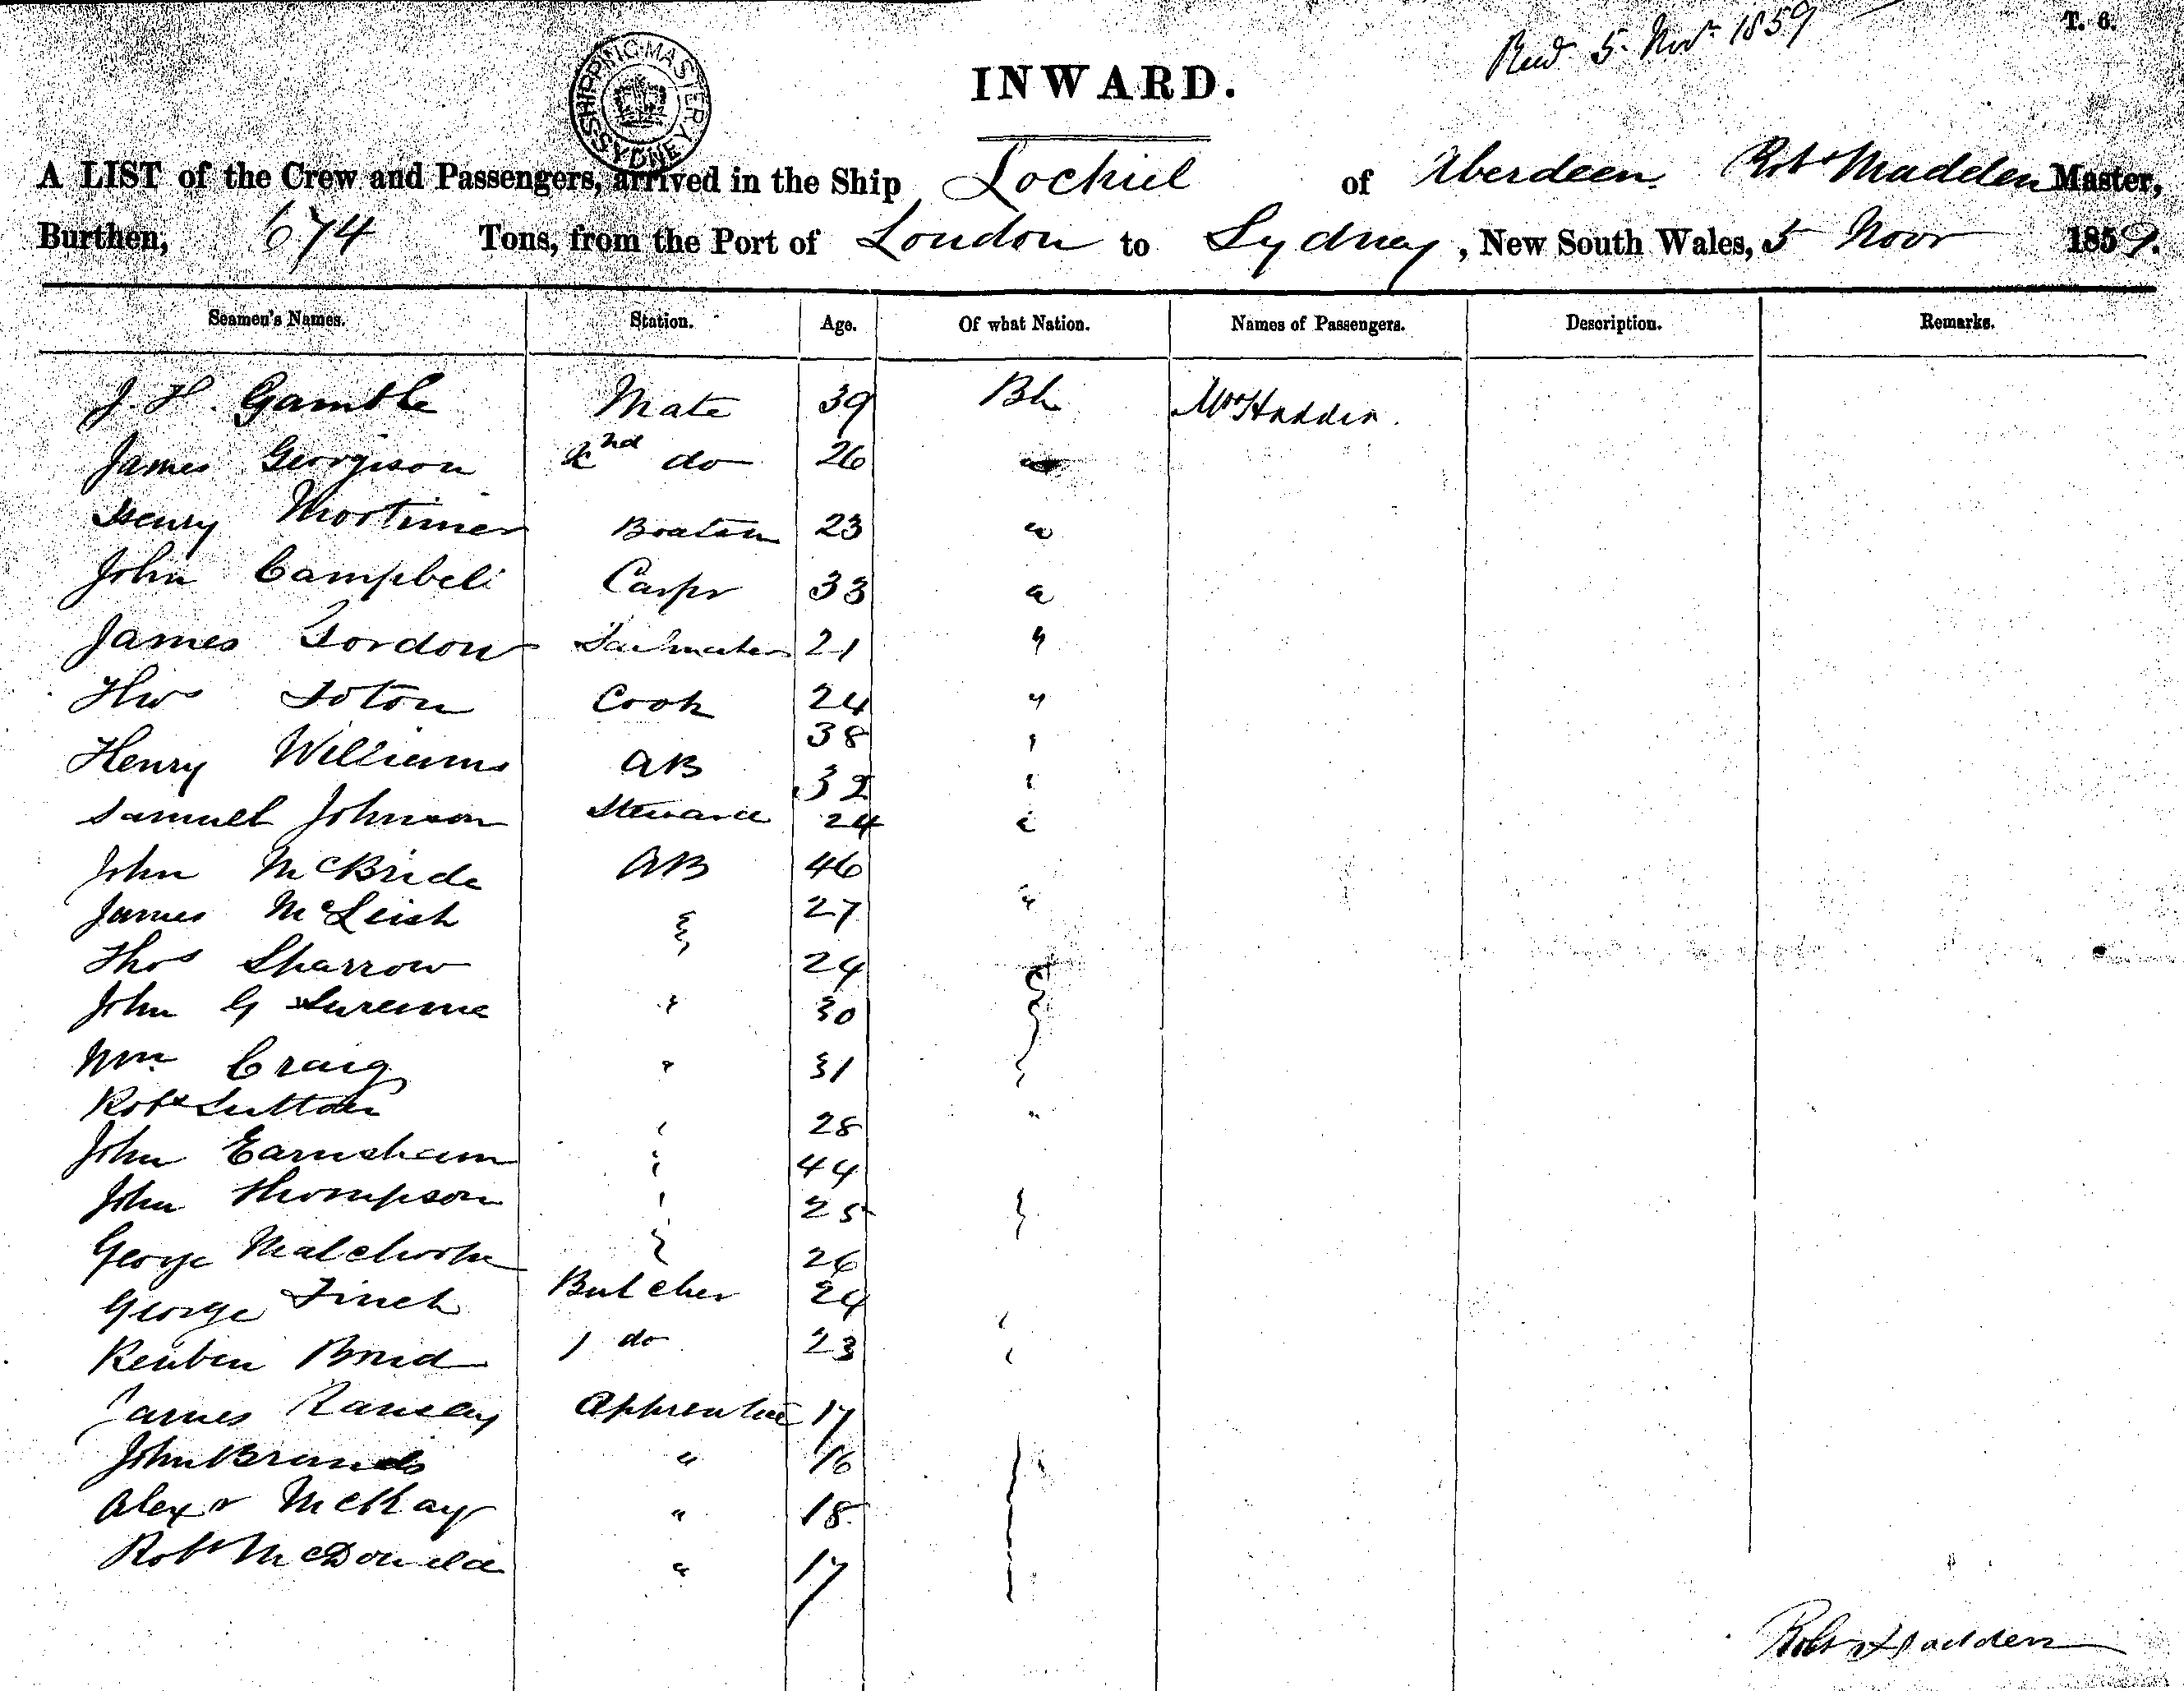 T. 6.
Recd. 5 Novr 1859
SHIPPING MASTER SYDNEY
INWARD.
A LIST of the Crew and Passengers, arrived in the Ship Lochiel of Aberdeen. Robt Madden Master,
Burthen, 674 Tons, from the Port of London to Sydney, New South Wales, 5 Novr 1859.
Seamen's Names. Station. Age. Of what Nation. Names of Passengers. Description. Remarks.
J. H. Gamble Mate 39 Bh Mrs Hadden.
James Georgison 2nd do 26 "
Henry Mortimer Boatsn 23 "
John Campbell Carpr 33 "
James Gordon Sailmaker 21 "
Toton Cook 24 "
Henry Williams AB 38 "
32 "
Samuel Johnson Steward 24 "
John McBride AB 46
James McLeish " 27 "
Thos Sharrow 24 "
John G " 30
Wm Craig " 31 "
Robt Sutton " 28 "
John Earnsham " 44
John Thompson " 25 "
George " 26
George Finch Butcher 24 "
Reuben Bond 1 do 23 "
James Ramsay Apprentice 17
John Brands " 16
Alexr McKay " 18
Robt McDonald " 17
Robt Hadden